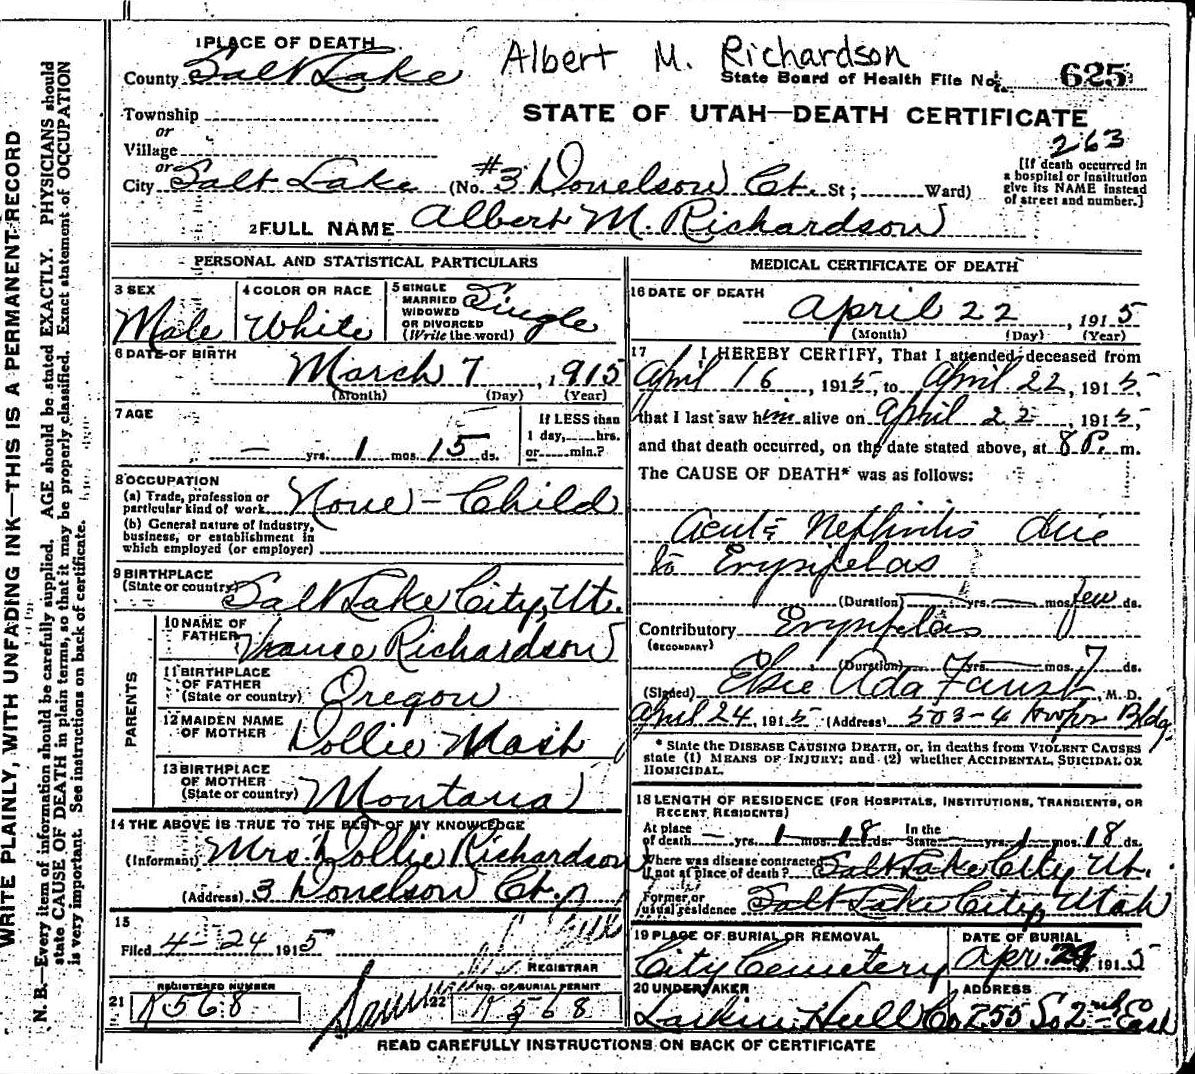 Albert M. Richardson
1 PLACE OF DEATH
County Salt Lake
State Board of Health File No. 625
Township
or
Village
or
City Salt Lake (No. #3 Donelson Ct. St; Ward)
STATE OF UTAH—DEATH CERTIFICATE
263
[If death occurred in a hospital or institution give its NAME instead of street and number.]
2 FULL NAME Albert M. Richardson
PERSONAL AND STATISTICAL PARTICULARS
3 SEX Male
4 COLOR OR RACE White
5 SINGLE MARRIED WIDOWED OR DIVORCED (Write the word) Single
6 DATE OF BIRTH March 7, 1915
(Month) (Day) (Year)
7 AGE — yrs. 1 mos. 15 ds.
If LESS than 1 day, hrs. or min.?
8 OCCUPATION
(a) Trade, profession or particular kind of work None - Child
(b) General nature of industry, business, or establishment in which employed (or employer)
9 BIRTHPLACE (State or country) Salt Lake City, Ut.
PARENTS
10 NAME OF FATHER Richardson
11 BIRTHPLACE OF FATHER (State or country) Oregon
12 MAIDEN NAME OF MOTHER Dollie Mash
13 BIRTHPLACE OF MOTHER (State or country) Montana
14 THE ABOVE IS TRUE TO THE BEST OF MY KNOWLEDGE
(Informant) Mrs Dollie Richardson
(Address) 3 Donelson Ct.
15
Filed 4-24 1915
REGISTRAR
21 REGISTERED NUMBER K568
22 NO. OF BURIAL PERMIT K568
MEDICAL CERTIFICATE OF DEATH
16 DATE OF DEATH April 22, 1915
(Month) (Day) (Year)
17 I HEREBY CERTIFY, That I attended deceased from
April 16, 1915, to April 22, 1915,
that I last saw him alive on April 22, 1915,
and that death occurred, on the date stated above, at 8 P. m.
The CAUSE OF DEATH* was as follows:
Acute Nephritis Due
to Erysipelas
(Duration) — yrs. — mos. few ds.
Contributory Erysipelas
(SECONDARY)
(Duration) yrs. — mos. 7 ds.
(Signed) Elsie Ada Faust, M.D.
April 24, 1915 (Address) 503-4 Bldg
* State the DISEASE CAUSING DEATH, or, in deaths from VIOLENT CAUSES
state (1) MEANS OF INJURY; and (2) whether ACCIDENTAL, SUICIDAL OR
HOMICIDAL.
18 LENGTH OF RESIDENCE (FOR HOSPITALS, INSTITUTIONS, TRANSIENTS, OR
RECENT RESIDENTS)
At place of death — yrs. 1 mos. 18 ds. In the State — yrs. 1 mos. 18 ds.
Where was disease contracted if not at place of death? Salt Lake City Ut.
Former or usual residence Salt Lake City, Utah
19 PLACE OF BURIAL OR REMOVAL City Cemetery
DATE OF BURIAL Apr. 24 1915
20 UNDERTAKER Larkin Hull Co
ADDRESS 255 So 2nd East
READ CAREFULLY INSTRUCTIONS ON BACK OF CERTIFICATE
WRITE PLAINLY, WITH UNFADING INK—THIS IS A PERMANENT RECORD
N. B.—Every item of information should be carefully supplied. AGE should be stated EXACTLY. PHYSICIANS should
state CAUSE OF DEATH in plain terms, so that it may be properly classified. Exact statement of OCCUPATION
is very important. See instructions on back of certificate.